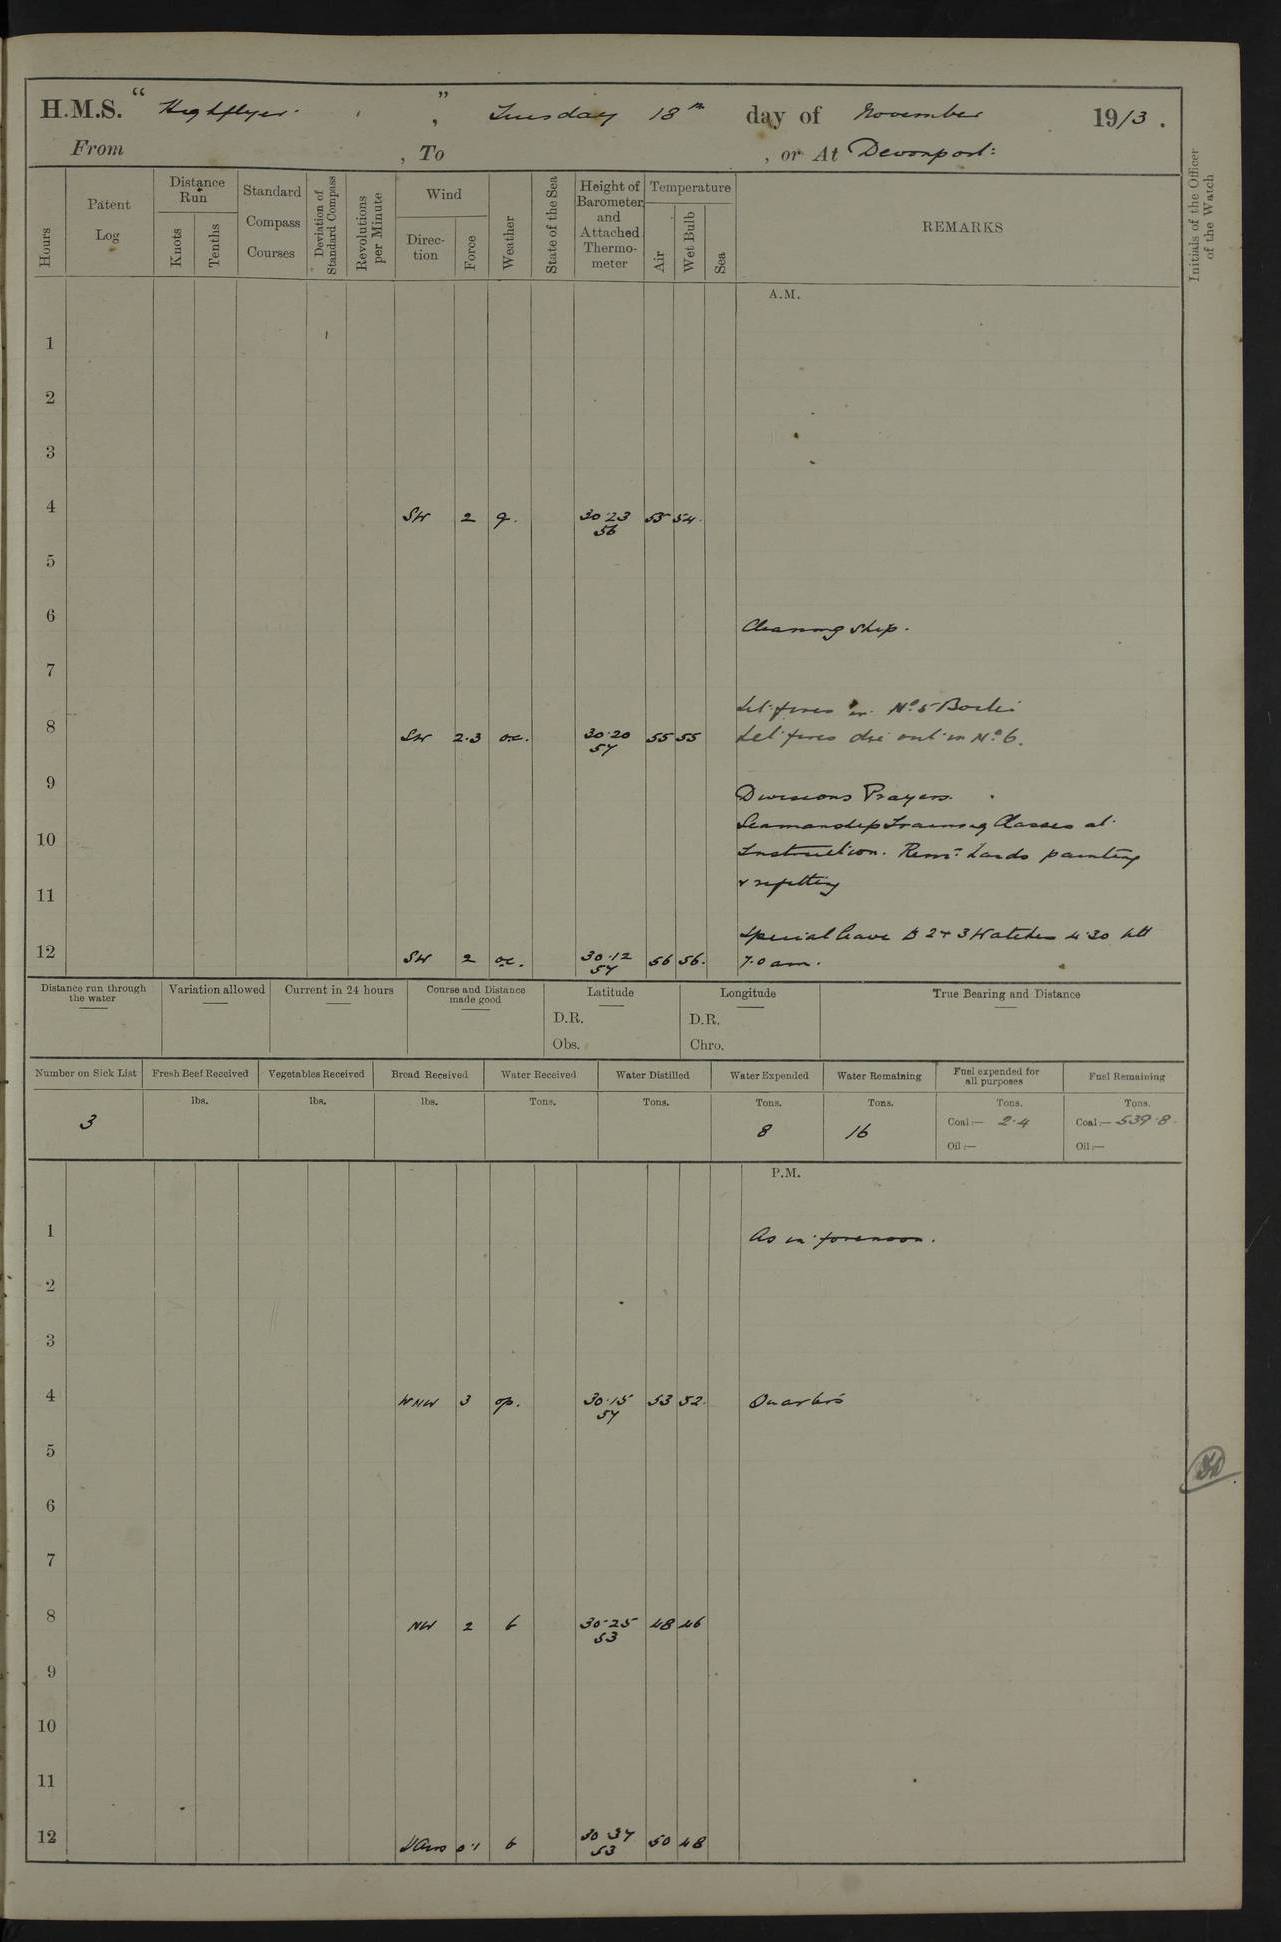 H.M.S. “ Highflyer ” , Tuesday 18th day of November 1913 .
From , To , or At Devonport :
Hours
Patent Log
Distance Run
Knots
Tenths
Standard Compass Courses
Deviation of Standard Compass
Revolutions per Minute
Wind
Direction
Force
Weather
State of the Sea
Height of Barometer and Attached Thermometer
Temperature
Air
Wet Bulb
Sea
REMARKS
Initials of the Officer of the Watch
A.M.
1
2
3
4 SW 2 g. 30.23 55 54.
56
5
6
Cleaning ship.
7
Lit fires in No 5 Boiler
8 SW 2.3 oc. 30.20 55 55 Let fires die out in No 6.
57
9
Divisions Prayers.
Seamanship Training Classes at
10
Instruction. Remr hands painting
& refitting
11
Special leave to 2 & 3 Watches 4.30 till
12 SW 2 oc. 30.12 56 56. 7.0 am.
57
Distance run through the water
Variation allowed
Current in 24 hours
Course and Distance made good
Latitude
D.R.
Obs.
Longitude
D.R.
Chro.
True Bearing and Distance
Number on Sick List
Fresh Beef Received
Vegetables Received
Bread Received
Water Received
Water Distilled
Water Expended
Water Remaining
Fuel expended for all purposes
Fuel Remaining
lbs. lbs. lbs. Tons. Tons. Tons. Tons. Tons. Tons.
3 8 16 Coal :— 2.4 Coal :— 539.8
Oil :— Oil :—
P.M.
1 As in forenoon.
2
3
4 WNW 3 op. 30.15 53 52. Quarters
57
5
6
7
8 NW 2 b 30.25 48 46
53
9
10
11
12 Vars 0.1 b 30.37 50 48
53